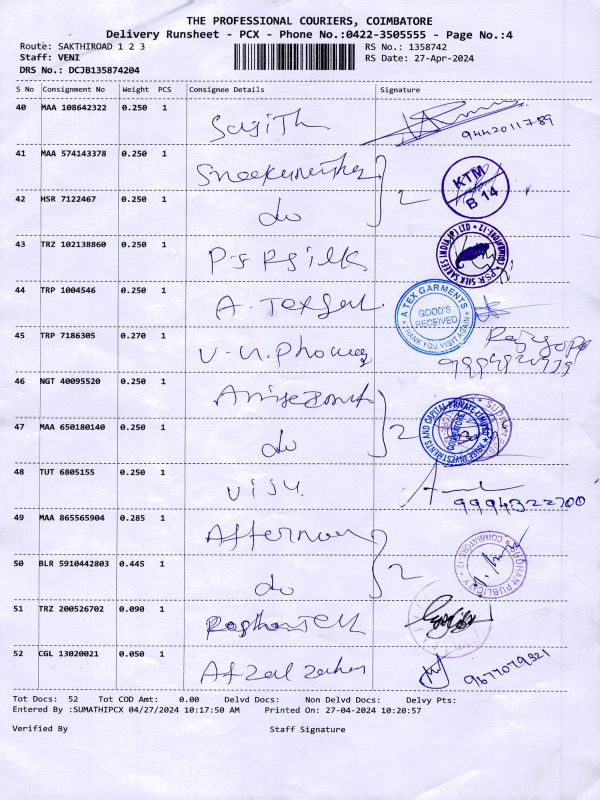 THE PROFESSIONAL COURIERS, COIMBATORE
Delivery Runsheet - PCX - Phone No.:0422-3505555 - Page No.:4
Route: SAKTHIROAD 1 2 3
RS No.: 1358742
Staff: VENI
RS Date: 27-Apr-2024
DRS No.: DCJB135874204
S No Consignment No Weight PCS Consignee Details Signature
40 MAA 108642322 0.250 1 Sajith
9442011789
41 MAA 574143378 0.250 1
KTM
B 14
42 HSR 7122467 0.250 1 do 2
43 TRZ 102138860 0.250 1 PSR Silk
44 TRP 1004546 0.250 1 A. Tex
A TEX GARMENTS
GOOD'S
RECEIVED
THANK YOU VISIT AGAIN
45 TRP 7186305 0.270 1
46 NGT 40095520 0.250 1
47 MAA 650180140 0.250 1 do 2
48 TUT 6805155 0.250 1 Viju
9994322700
49 MAA 865565904 0.285 1
50 BLR 5910442803 0.445 1 do 2
51 TRZ 200526702 0.090 1
52 CGL 13020021 0.050 1 Afzal
9677079321
Tot Docs: 52 Tot COD Amt: 0.00 Delvd Docs: Non Delvd Docs: Delvy Pts:
Entered By :SUMATHIPCX 04/27/2024 10:17:50 AM Printed On: 27-04-2024 10:20:57
Verified By Staff Signature